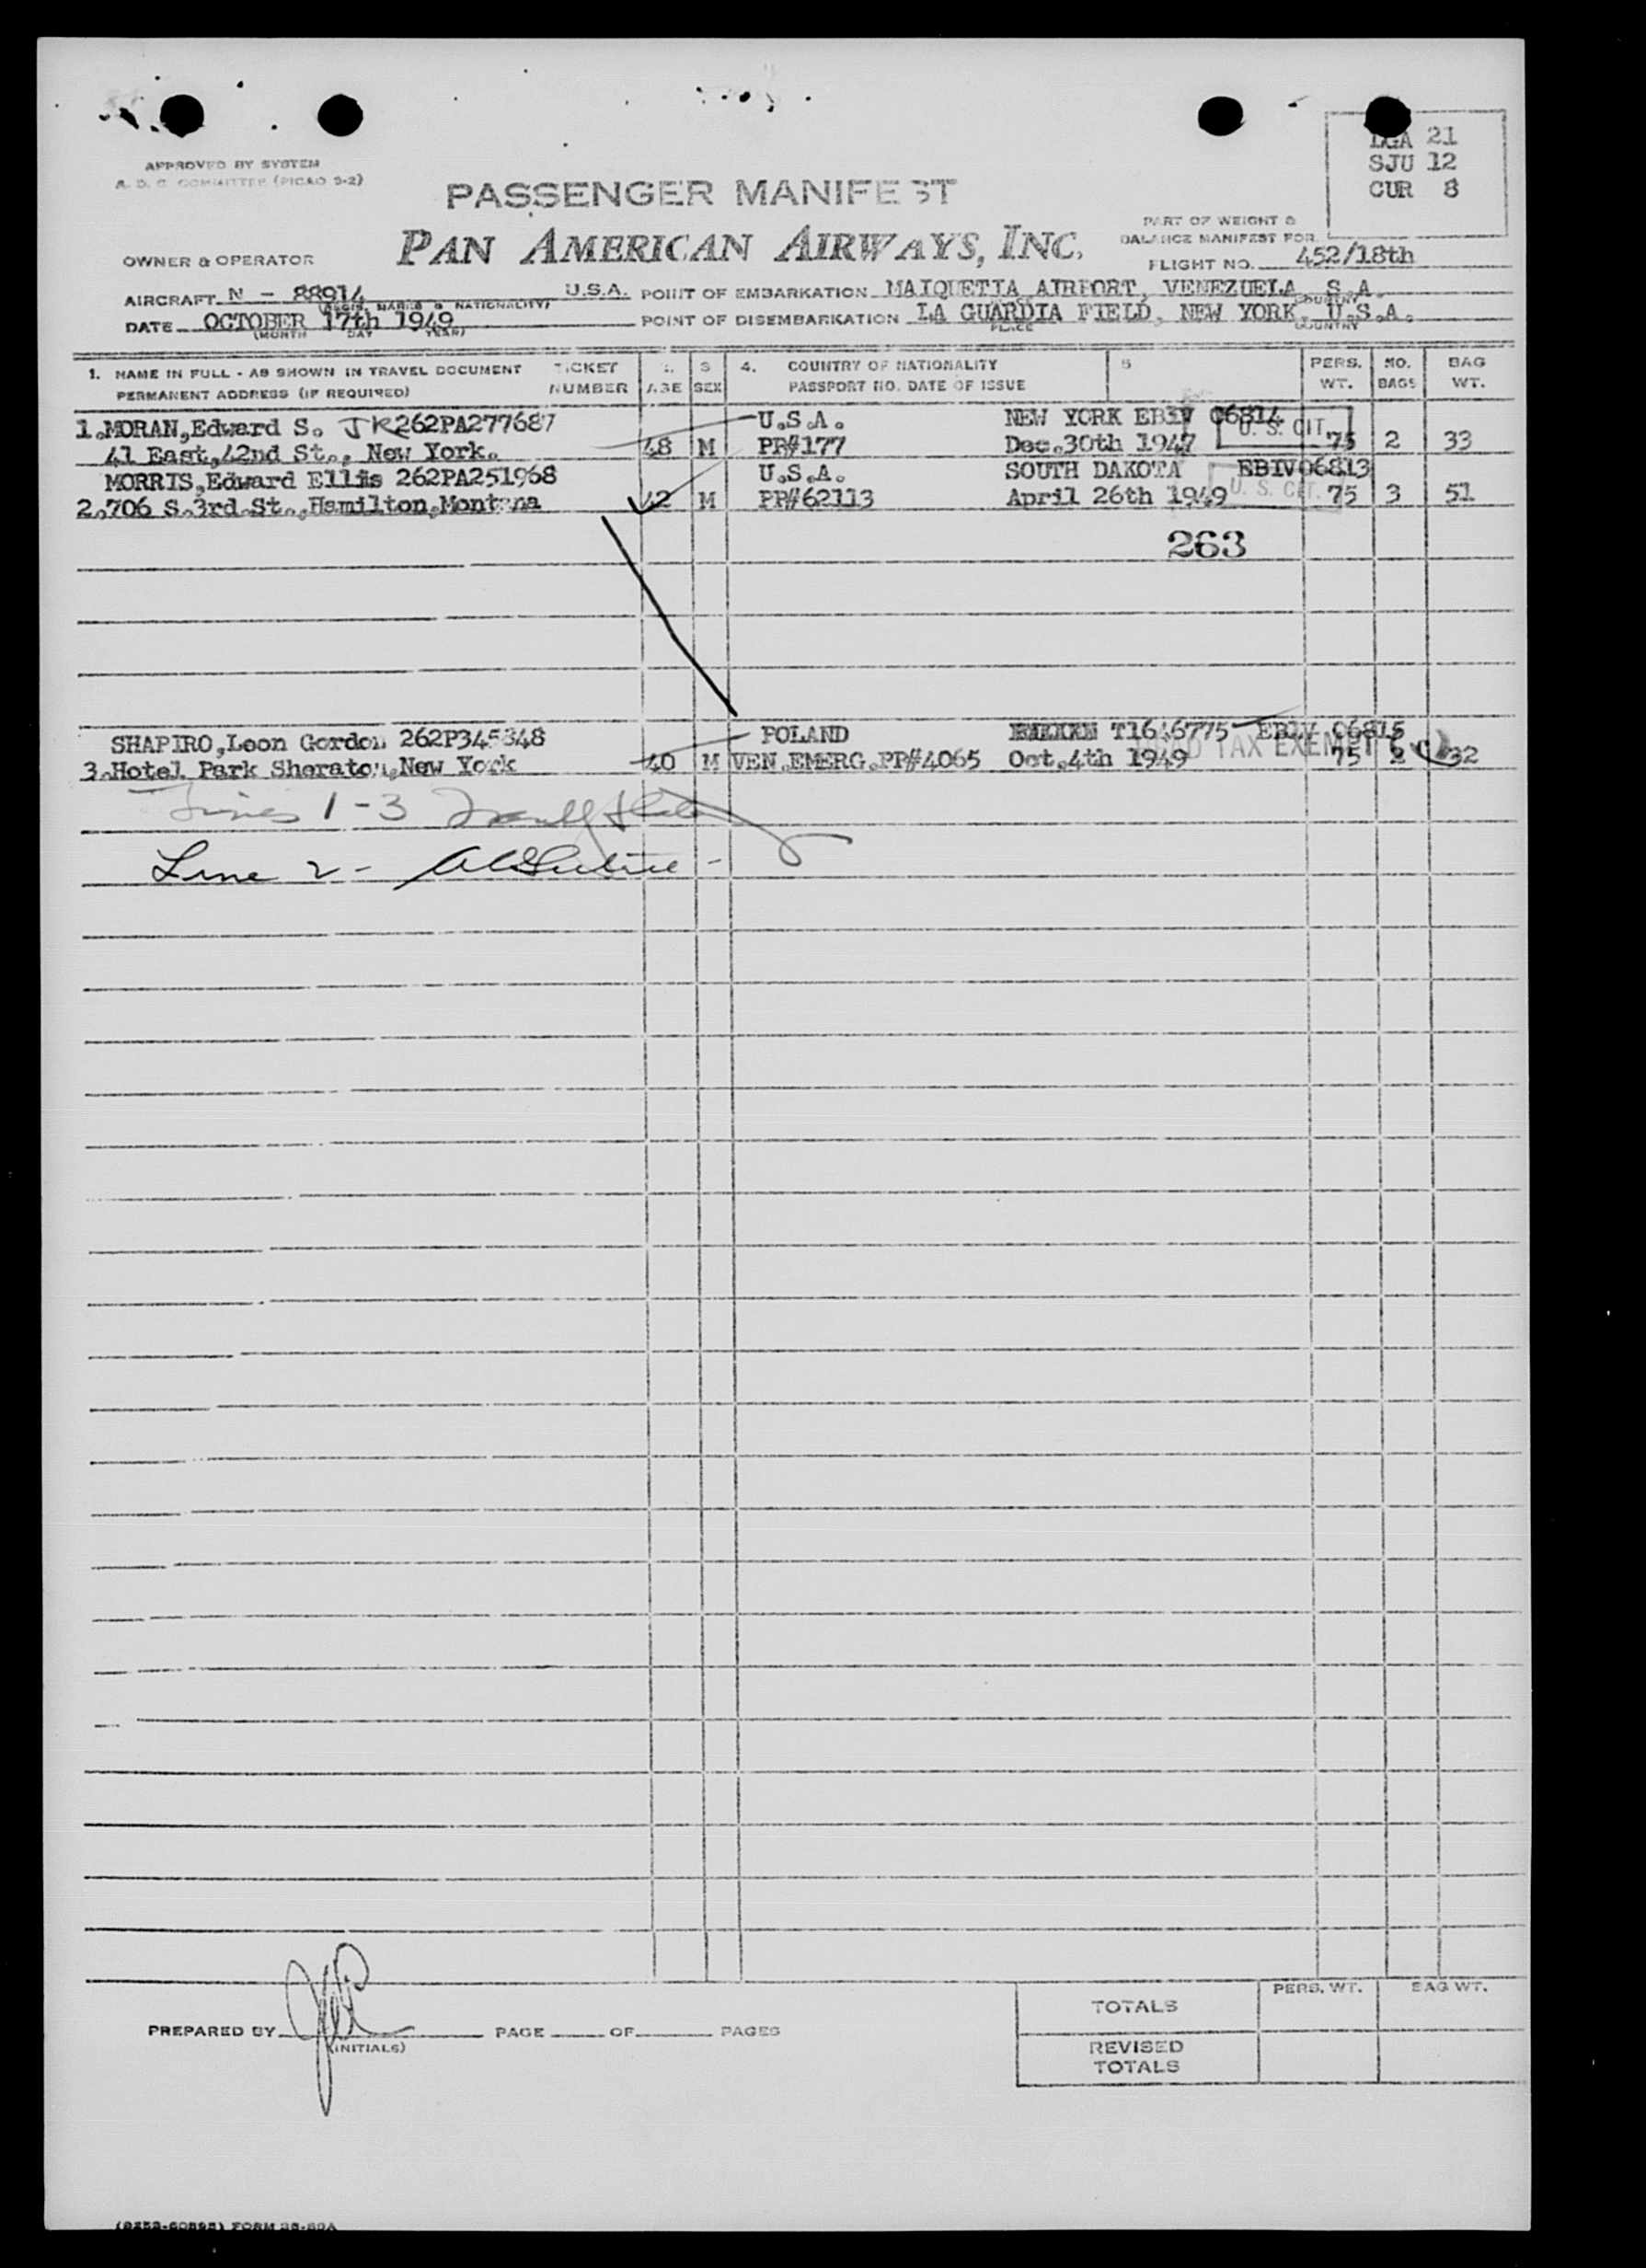 LGA 21
SJU 12
CUR 8
APPROVED BY SYSTEM
A. D. C. COMMITTEE (PICAO 9-2)
PASSENGER MANIFEST
PART OF WEIGHT &
BALANCE MANIFEST FOR
PAN AMERICAN AIRWAYS, INC.
OWNER & OPERATOR
FLIGHT NO. 452/18th
AIRCRAFT N - 88914 U.S.A. POINT OF EMBARKATION MAIQUETIA AIRPORT, VENEZUELA S.A.
(REGIS. MARKS & NATIONALITY) COUNTRY
DATE OCTOBER 17th 1949 POINT OF DISEMBARKATION LA GUARDIA FIELD, NEW YORK, U.S.A.
(MONTH DAY YEAR) PLACE COUNTRY
1. NAME IN FULL - AS SHOWN IN TRAVEL DOCUMENT TICKET S 4. COUNTRY OF NATIONALITY 5 PERS. NO. BAG
PERMANENT ADDRESS (IF REQUIRED) NUMBER AGE SEX PASSPORT NO. DATE OF ISSUE WT. BAGS WT.
1.MORAN,Edward S. JR262PA277687 U.S.A. NEW YORK EBIV 06814
U. S. CIT.
41 East,42nd St., New York. 48 M PP#177 Dec.30th 1947 75 2 33
MORRIS,Edward Ellis 262PA251968 U.S.A. SOUTH DAKOTA EBIV06813
U. S. CIT.
2.706 S.3rd.St.,Hamilton,Montana 42 M PP#62113 April 26th 1949 75 3 51
263
SHAPIRO,Leon Gordon 262P345348 POLAND T1646775 EBIV 06815
TAX EXEMPT
3.Hotel Park Sheraton,New York 40 M VEN.EMERG.PP#4065 Oct.4th 1949 75 2 32
Lines 1-3
Line 2 -
PERS. WT. BAG WT.
TOTALS
PREPARED BY PAGE OF PAGES
(INITIALS)
REVISED
TOTALS